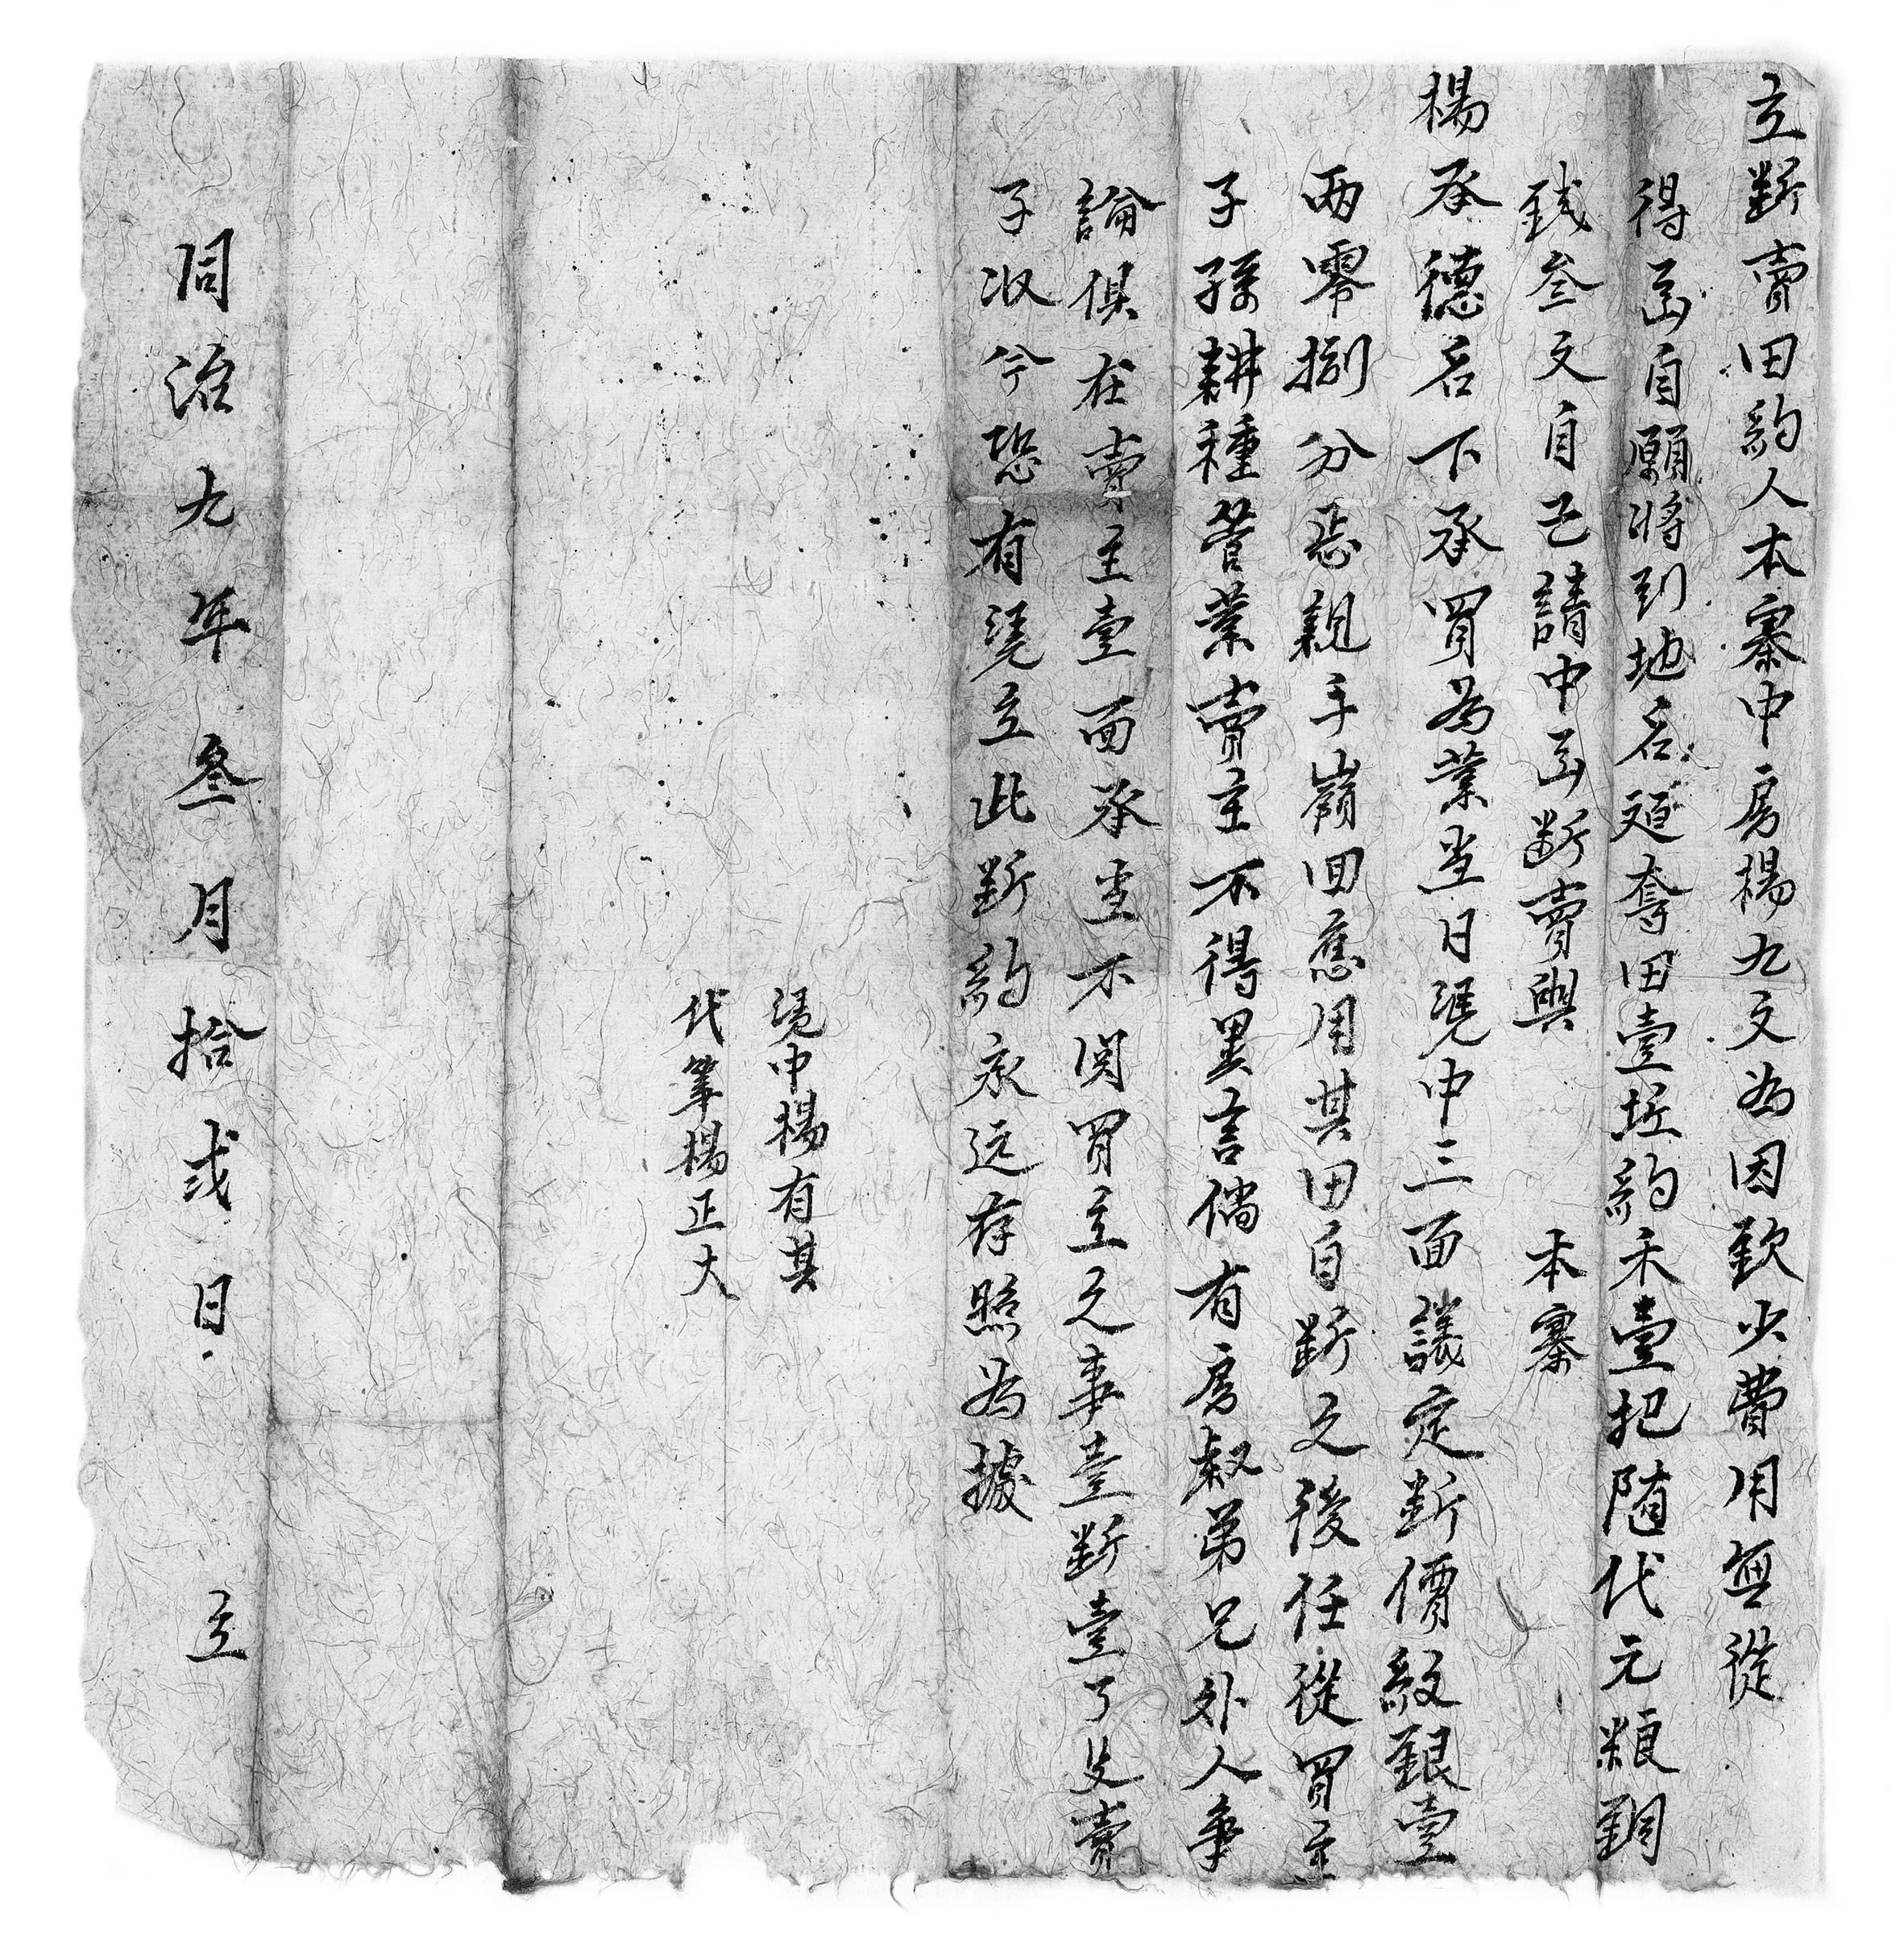 立斷賣田約人本寨中房楊九文為因欽少費用無從
得出自願將到地名迊奪田壹坵約禾壹把随代元粮銅
錢叁文自己請中出断賣與 本寨
楊承德名下承買為業坐日凴中三面議定断價紋銀壹
兩零捌分悉親手嶺回應用其田自断之後任從買主
子孫耕種管業賣主不得異言倘有房叔弟兄外人争
論俱在賣主壹面承坐不関買主之事壹断壹了父賣
子収今恐有凴立此断約永远存照為據
凴中楊有其
代筆楊正大
同治九年叁月拾弍日 立